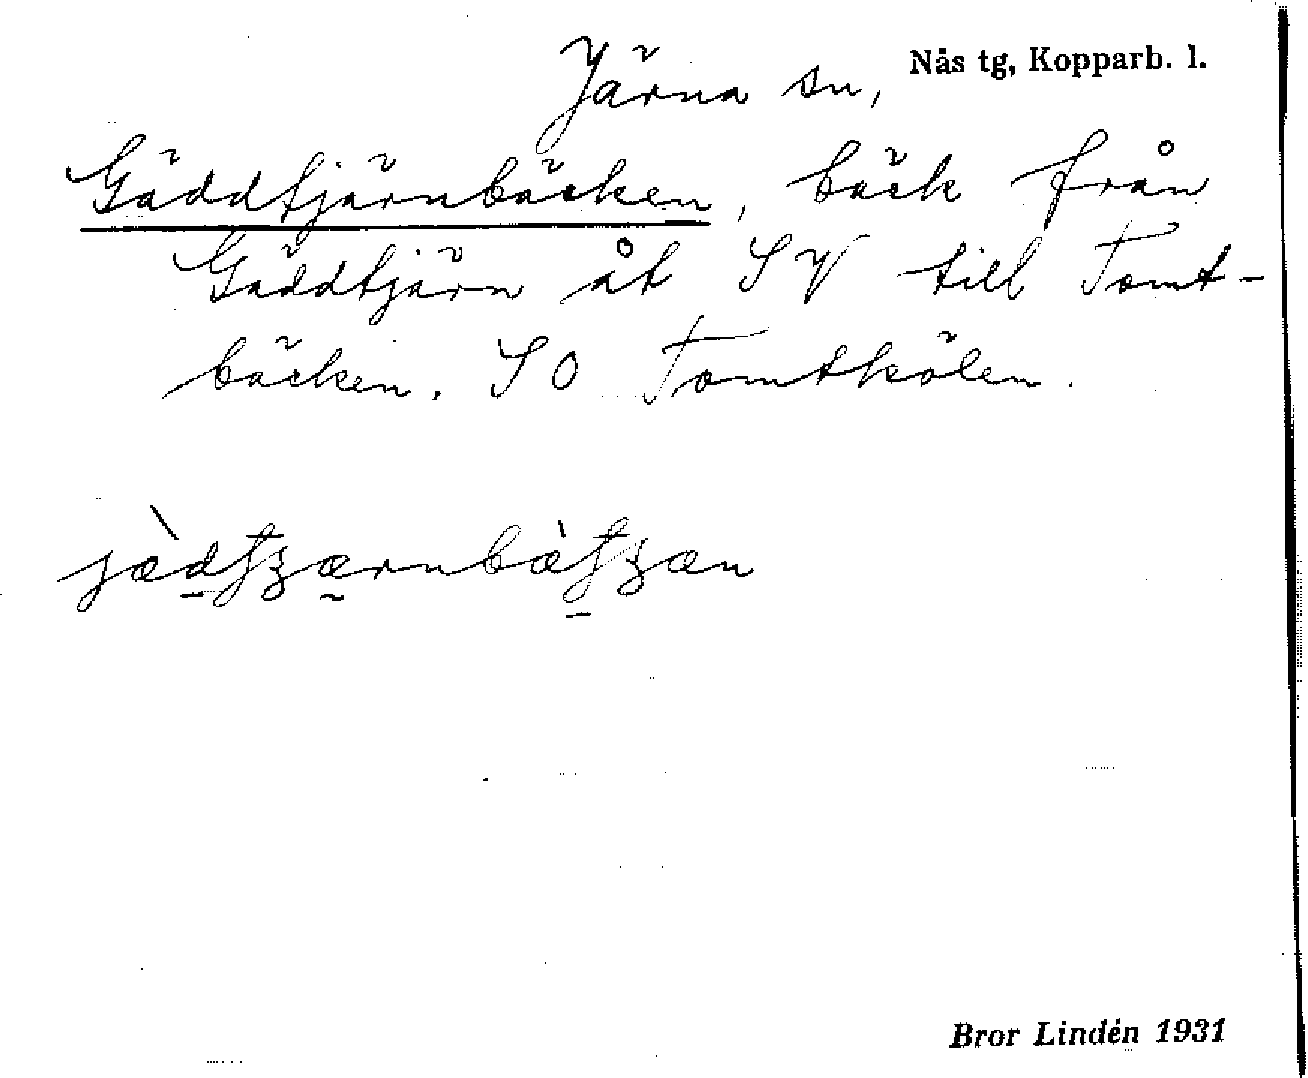 Järna sn, Nås tg, Kopparb. l.
Gäddtjärnbäcken, bäck från
Gäddtjärn åt SV till Tomt-
bäcken. SO Tomtkölen.
Bror Lindén 1931